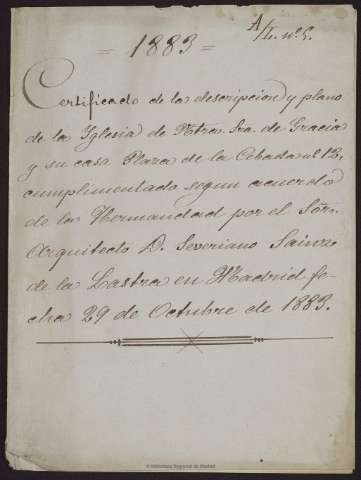 A/L. nº 5.
= 1883 =
Certificado de la descripcion y plano
de la Yglesia de Ntra. Sra. de Gracia
y su casa Plaza de la Cebada al
cumplimentado segun acuerdo
de la Hermandad por el Sór.
Arquitecto D. Severiano Sainz
de la Lastra en Madrid fe-
cha 29 de Octubre de 1883.
© Biblioteca Regional de Madrid